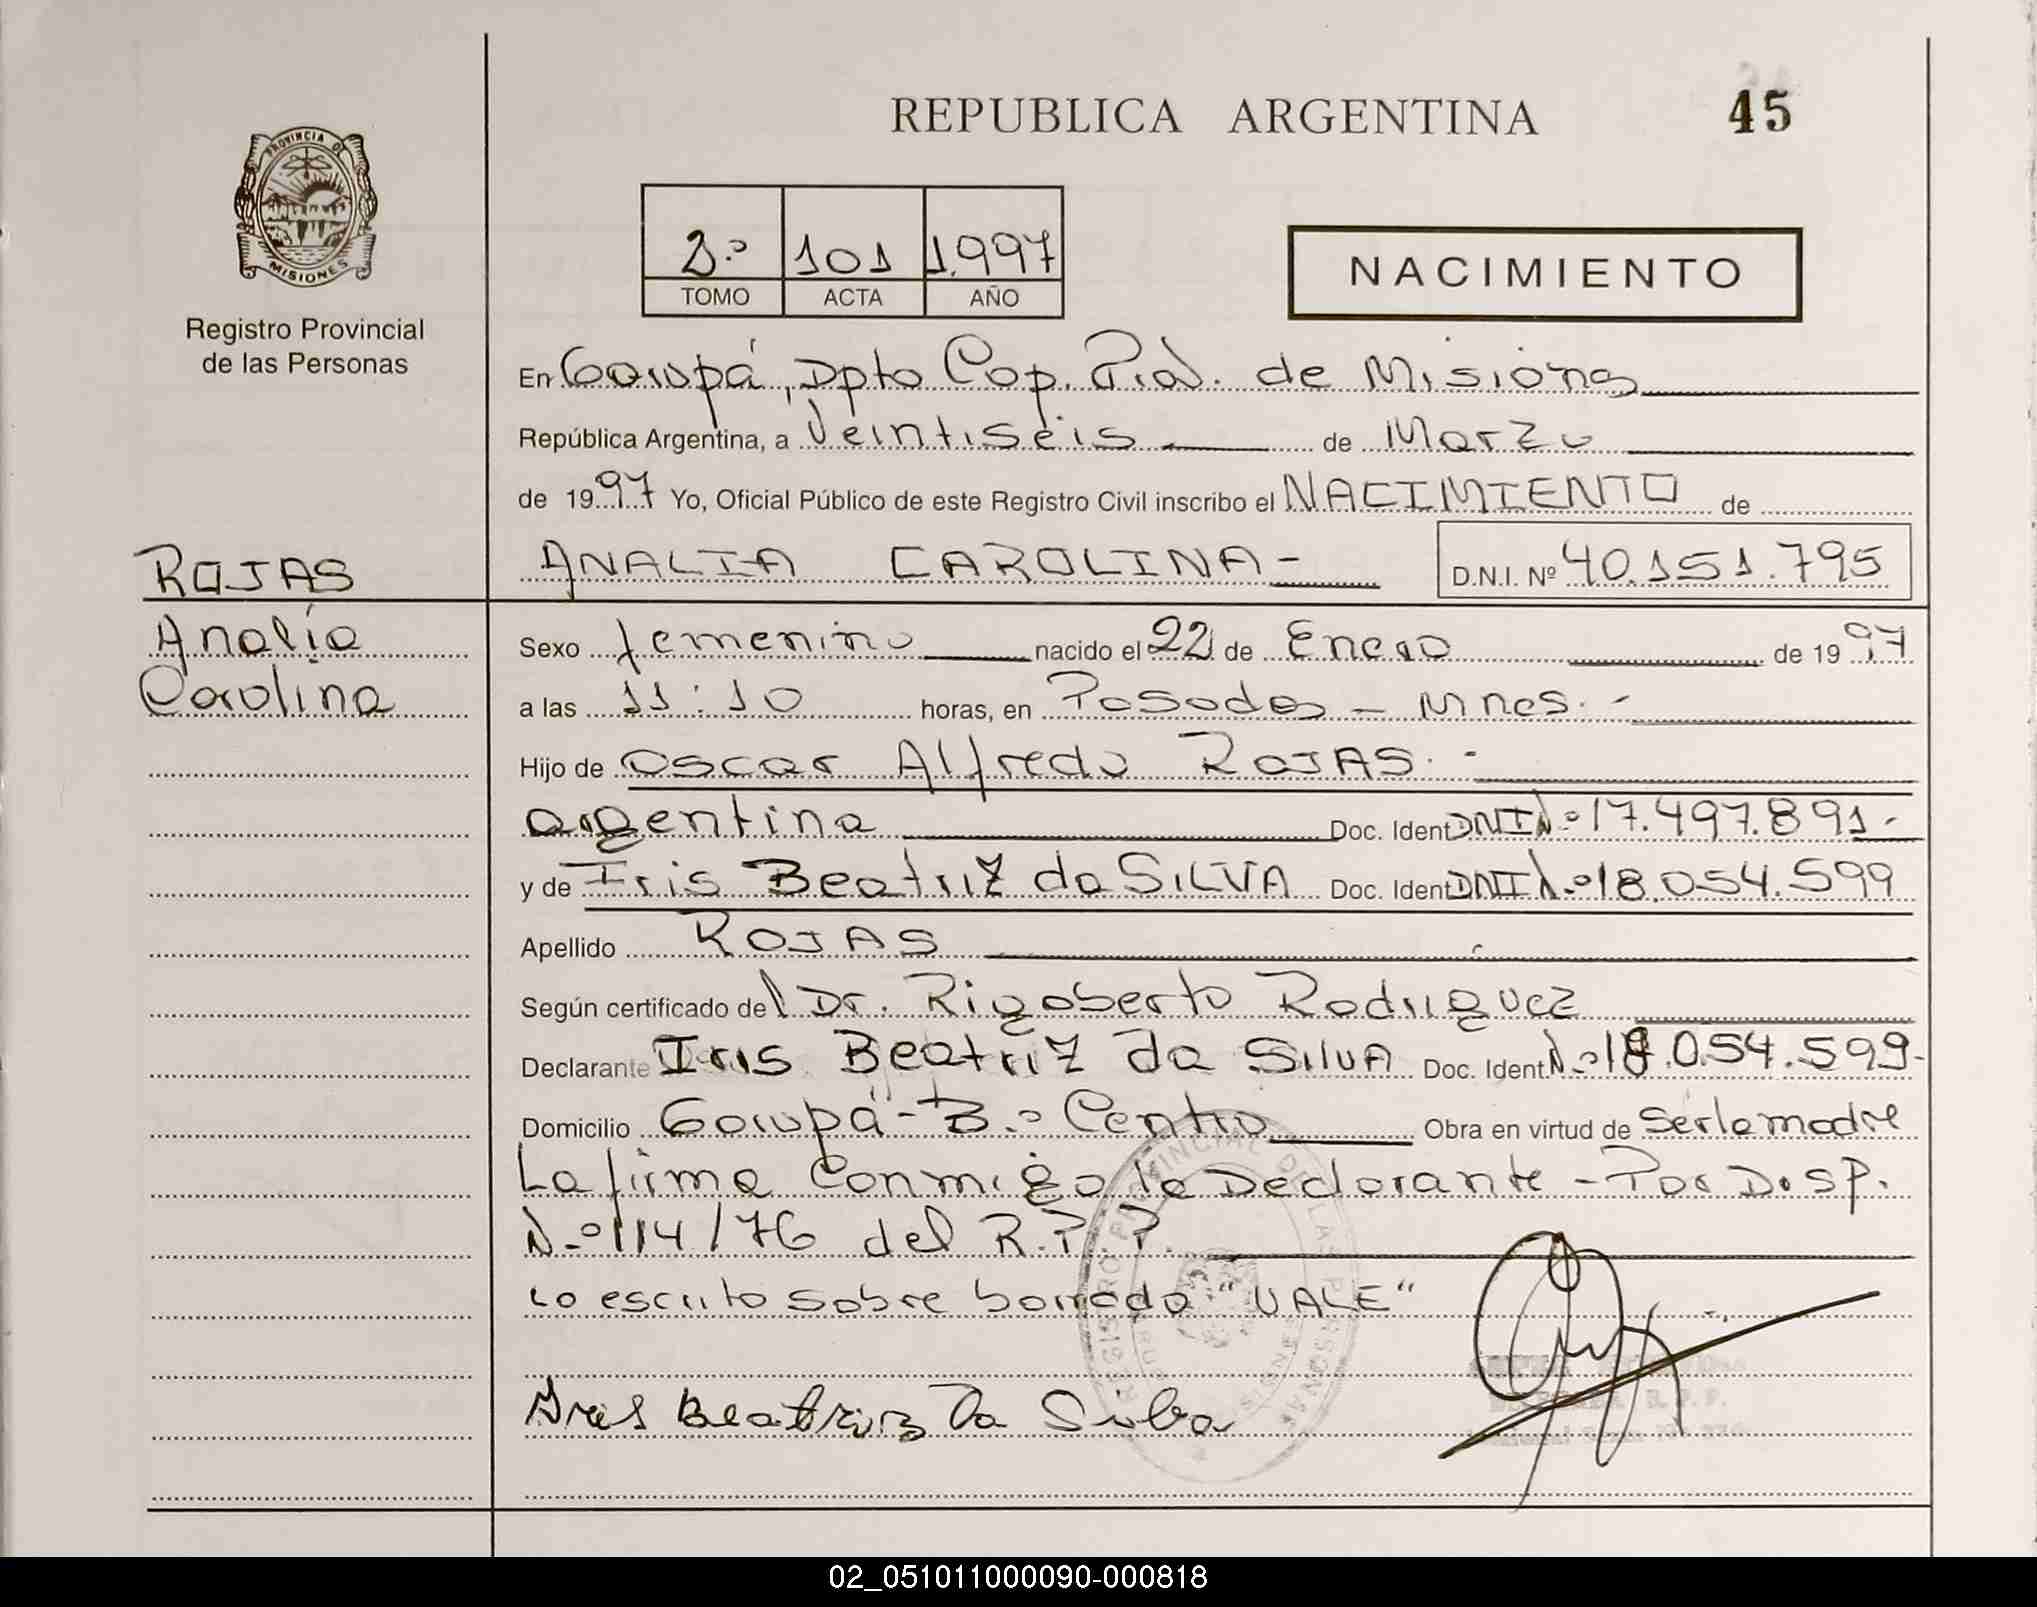 REPUBLICA ARGENTINA
45
PROVINCIA DE
MISIONES
Registro Provincial
de las Personas
2º 101 1.997
TOMO ACTA AÑO
NACIMIENTO
En Garupá, Dpto Cap. Pcia. de Misiones
República Argentina, a Veintiseis de Marzo
de 1997 Yo, Oficial Público de este Registro Civil inscribo el NACIMIENTO de
ROJAS
ANALIA CAROLINA-
D.N.I. Nº 40.151.795
Analía
Carolina
Sexo femenino nacido el 22 de Enero de 1997
a las 11:10 horas, en Posadas - Mnes.-
Hijo de Oscar Alfredo ROJAS.-
argentina Doc. Ident DNI Nº 17.497.891-
y de Iris Beatriz da SILVA Doc. Ident DNI Nº 18.054.599
Apellido ROJAS
Según certificado del Dr. Rigoberto Rodriguez
Declarante Iris Beatriz da SILVA Doc. Ident. Nº 18.054.599-
Domicilio Garupá - Bº Centro Obra en virtud de Ser la madre
La firma Conmigo la Declarante - Por Disp.
Nº 114/76 del R.P.P.
Lo escrito sobre borrado "VALE"
REGISTRO PROVINCIAL DE LAS PERSONAS
Iris Beatriz Da Silva
R.P.P.
02_051011000090-000818